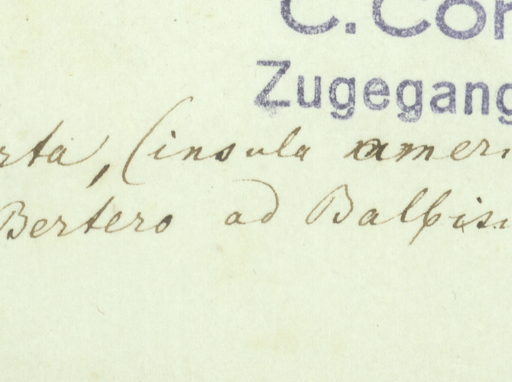 C. Cor
Zugegang
rta, (insula ameri
Bertero ad Balbisi